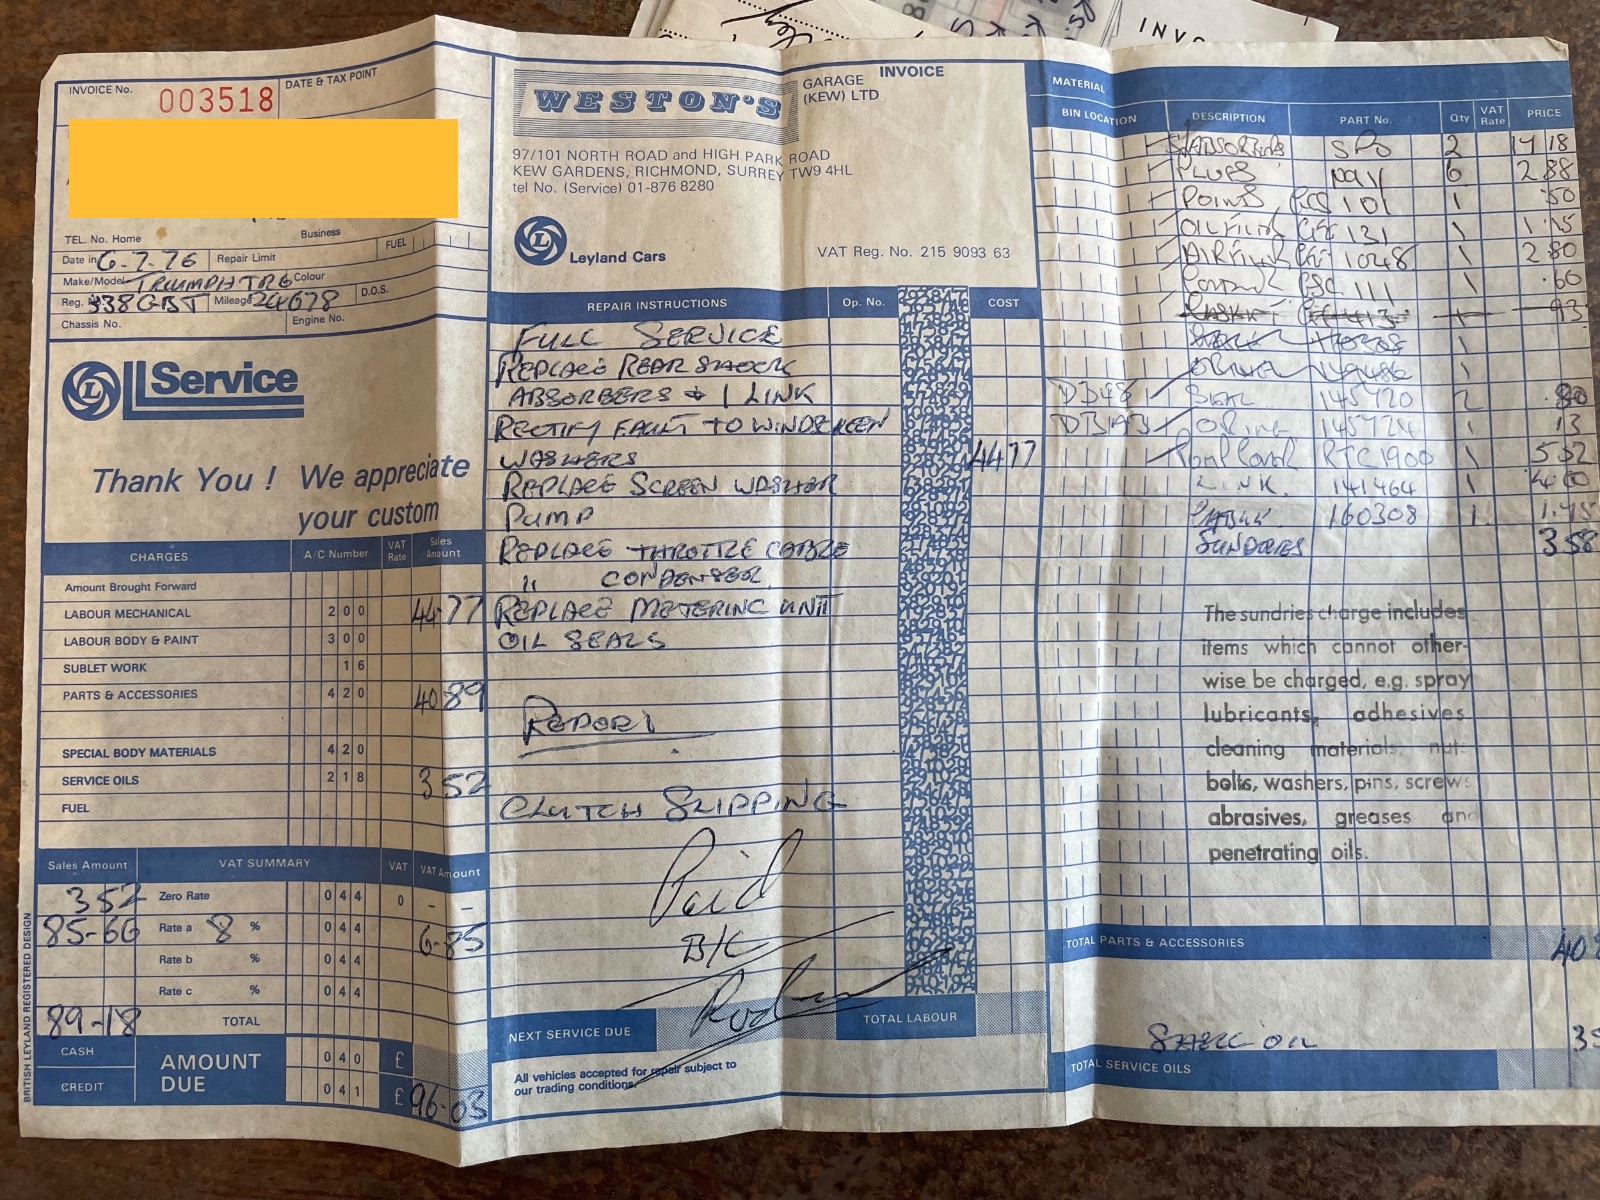 INVOICE No. 003518 DATE & TAX POINT
TEL. No. Home Business
Date in 6-7-76 Repair Limit FUEL
Make/Model TRIUMPH TR6 Colour
Reg. No. 338GBT Mileage 24678 D.O.S.
Chassis No. Engine No.
L Service
Thank You ! We appreciate
your custom
CHARGES A/C Number VAT Rate Sales Amount
Amount Brought Forward
LABOUR MECHANICAL 200 44 77
LABOUR BODY & PAINT 300
SUBLET WORK 16
PARTS & ACCESSORIES 420 40 89
SPECIAL BODY MATERIALS 420
SERVICE OILS 218 3 52
FUEL
Sales Amount VAT SUMMARY VAT VAT Amount
3 52 Zero Rate 044 0 – –
85-66 Rate a 8 % 044 6-85
Rate b % 044
Rate c % 044
89-18 TOTAL
CASH AMOUNT DUE 040 £
CREDIT 041 £ 96-03
BRITISH LEYLAND REGISTERED DESIGN
INVOICE
WESTON'S GARAGE (KEW) LTD
97/101 NORTH ROAD and HIGH PARK ROAD
KEW GARDENS, RICHMOND, SURREY TW9 4HL
tel No. (Service) 01-876 8280
L Leyland Cars
VAT Reg. No. 215 9093 63
REPAIR INSTRUCTIONS Op. No. COST
FULL SERVICE
REPLACE REAR SHOCK
ABSORBERS & 1 LINK
RECTIFY FAULT TO WINDSCREEN
WASHERS 44 77
REPLACE SCREEN WASHER
PUMP
REPLACE THROTTLE CABLE
" CONDENSER
REPLACE METERING UNIT
OIL SEALS
REPORT
CLUTCH SLIPPING
Paid
B/C
NEXT SERVICE DUE TOTAL LABOUR
All vehicles accepted for repair subject to
our trading conditions.
MATERIAL
BIN LOCATION DESCRIPTION PART No. Qty VAT Rate PRICE
S/ABSORBERS SPO 2 17 18
PLUGS N9Y 6 2.88
POINTS 101 1 50
OIL FILTER 131 1
AIR FILTER 1048 1 2 80
111 1 .60
93
1
1
SEAL 145720 2
O RING 1 13
RTC1900 1 5 52
LINK 141464 1
160308 1
SUNDRIES 3 58
The sundries charge includes
items which cannot other-
wise be charged, e.g. spray
lubricants, adhesives
cleaning materials, nuts
bolts, washers, pins, screws
abrasives, greases and
penetrating oils.
TOTAL PARTS & ACCESSORIES 40
SHELL OIL 3
TOTAL SERVICE OILS